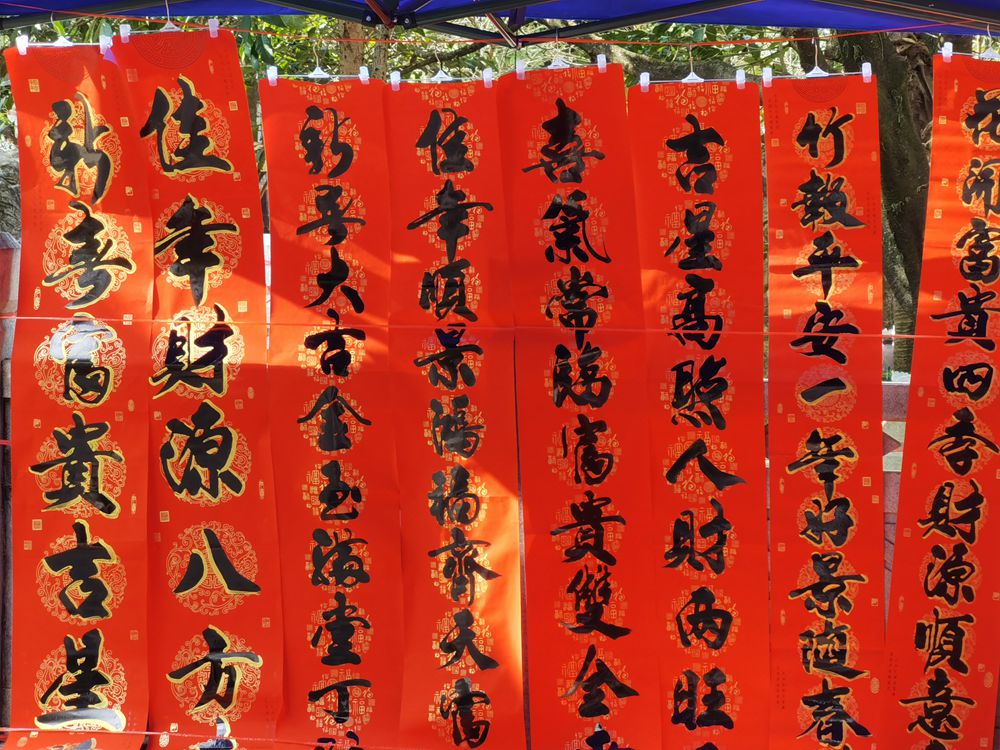 新喜富貴吉星
佳年財源八方
新大吉金玉滿堂丁
佳年順景鴻福齊天富
喜氣常臨富貴雙全
吉星高照人財两旺
竹報平安一年好景隨春
花開富貴四季財源順意